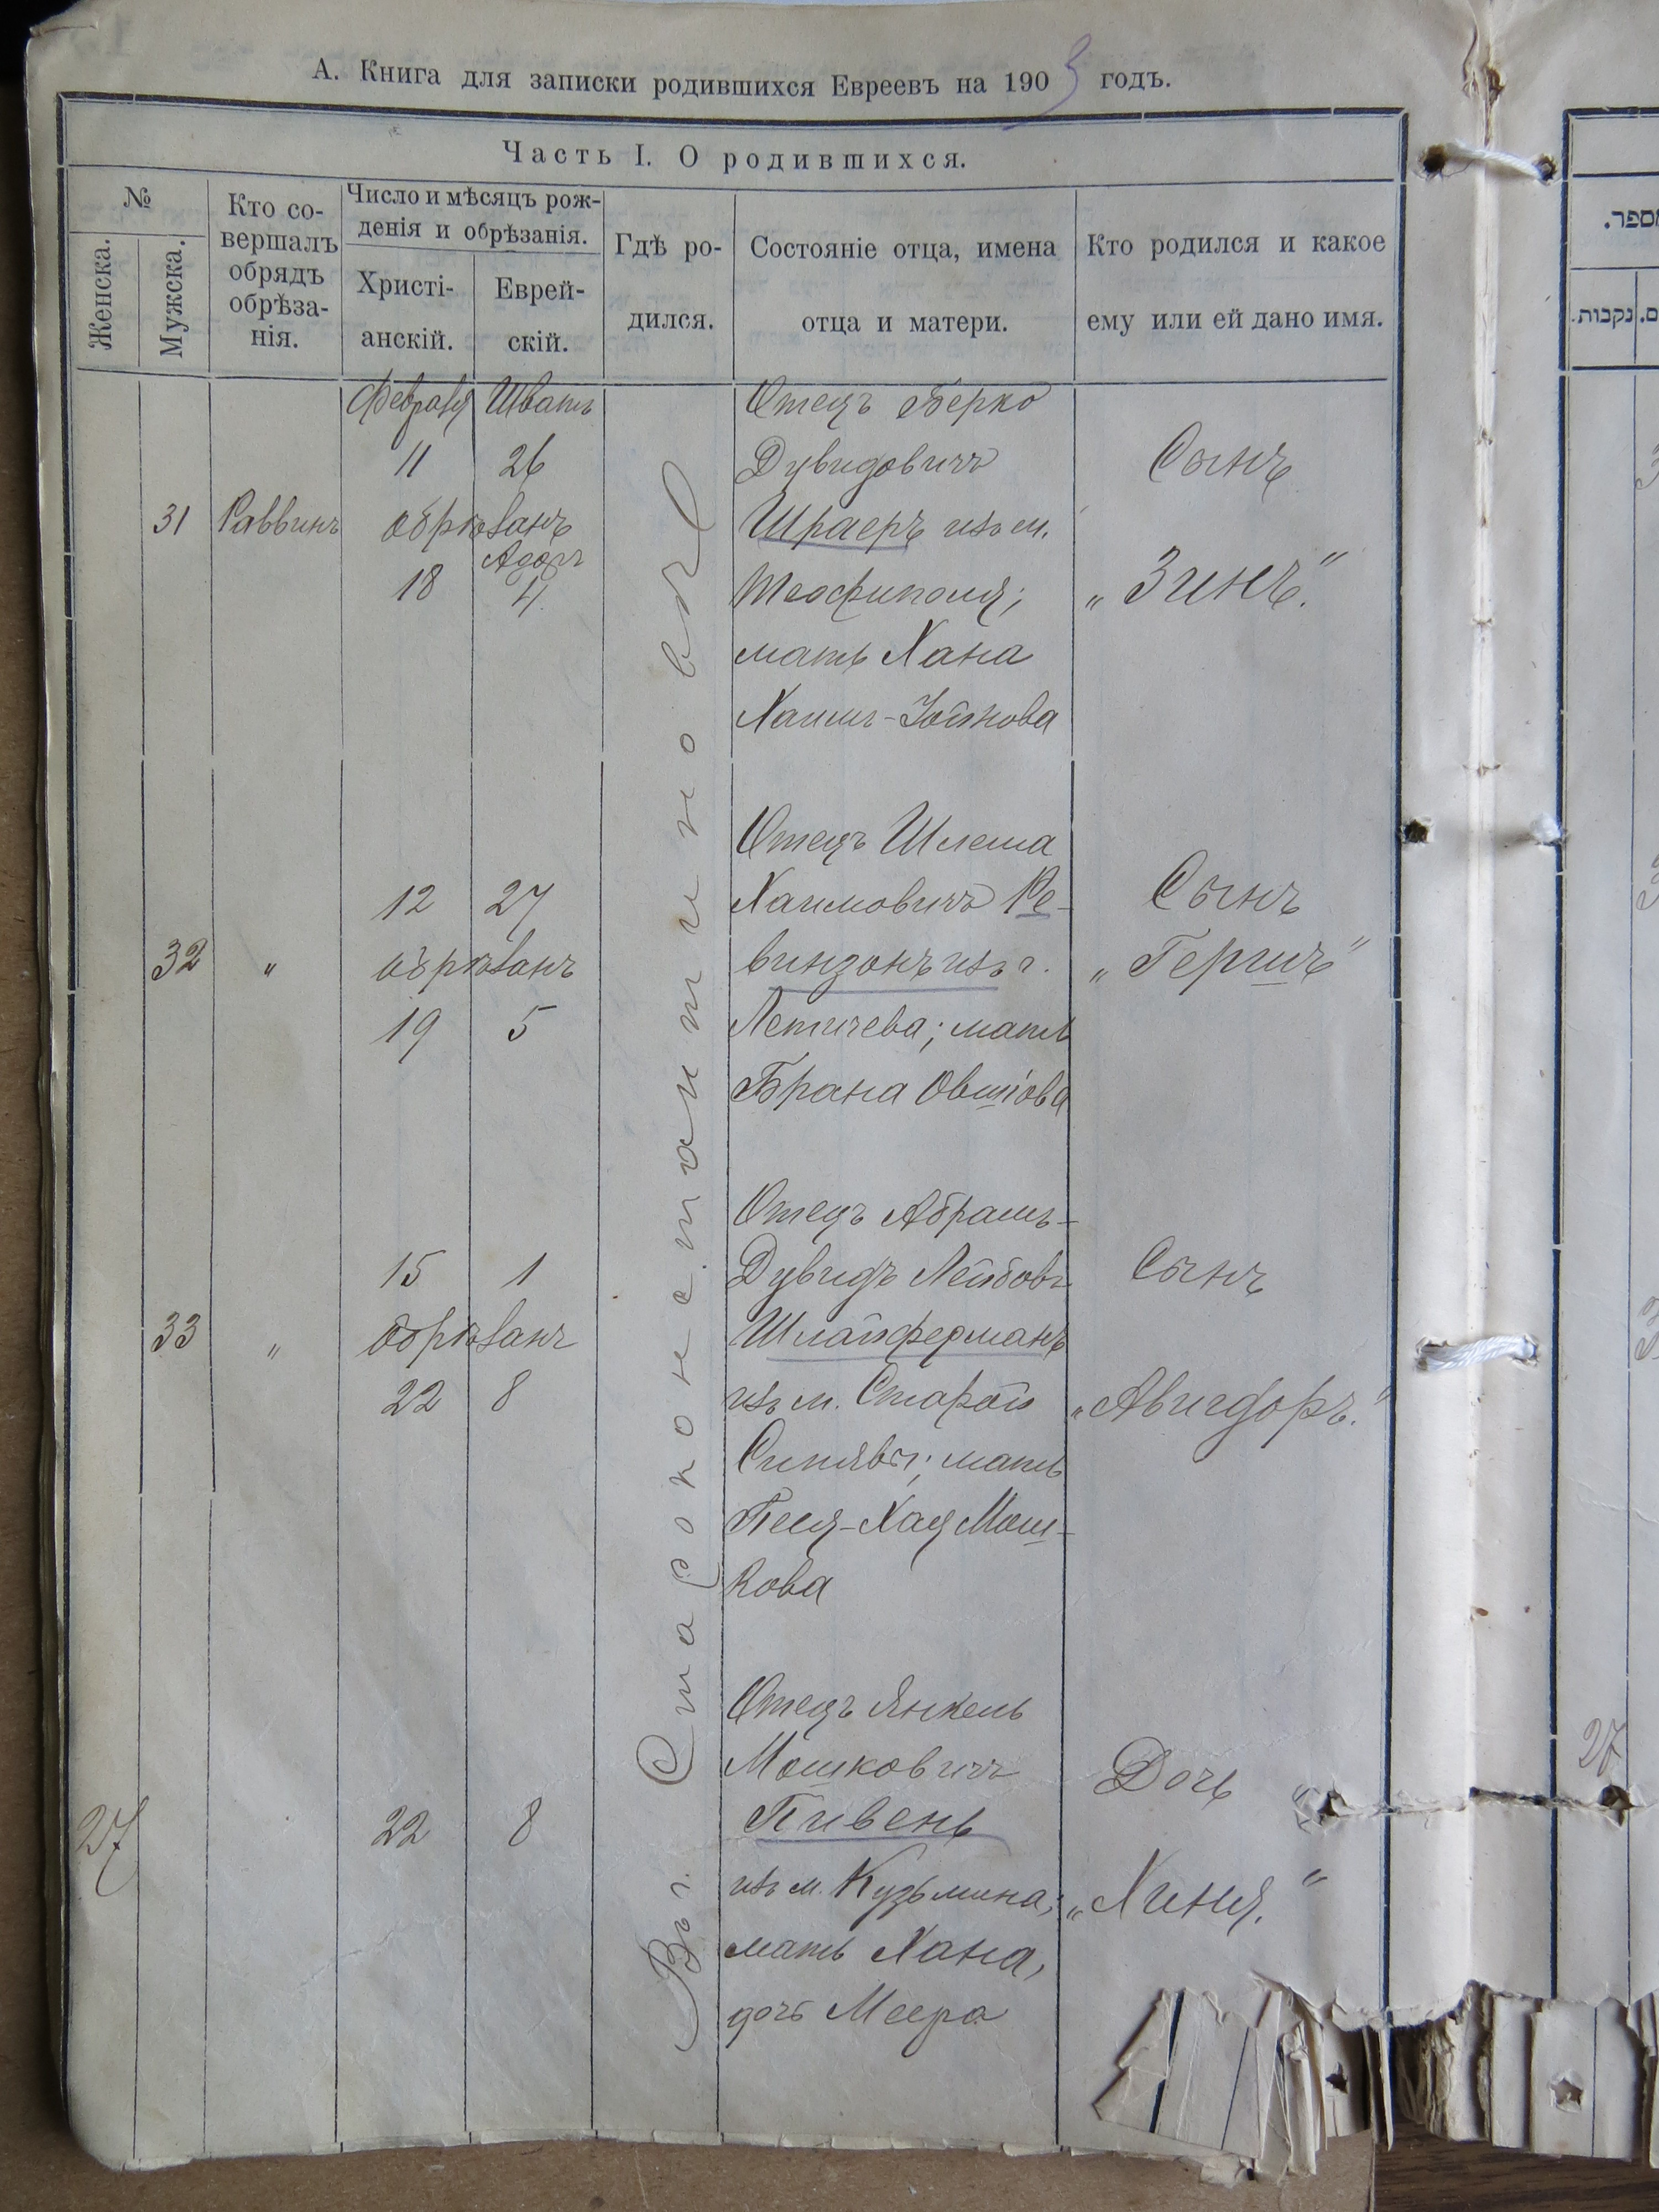 А. Книга для записки родившихся Евреевъ на 1903 годъ.
Часть I. О родившихся.
№
Женска.
Мужска.
Кто со-
вершалъ
обрядъ
обрѣза-
нія.
Число и мѣсяцъ рож-
денія и обрѣзанія.
Христі-
анскій.
Еврей-
скій.
Гдѣ ро-
дился.
Состояніе отца, имена
отца и матери.
Кто родился и какое
ему или ей дано имя.
Въ г. Староконстантиновѣ
Февраля Шватъ
11 26
31 Раввинъ обрѣзанъ
Адаръ
18 4.
Отецъ Берко
Дувидовичъ
Шраеръ изъ м.
Теофиполя;
мать Хана
Хаимъ-Іойнова
Сынъ
„Зинъ."
12 27
32 " обрѣзанъ
19 5
Отецъ Шлема
Хаимовичъ Ре-
винзонъ изъ г.
Летичева; мать
Брана Овшіова
Сынъ
„Гершъ"
15 1
33 " обрѣзанъ
22 8
Отецъ Абрамъ-
Дувидъ Лейбовъ
Шлайферманъ
изъ м. Старой
Синявы; мать
Песя-Хая Мош-
кова
Сынъ
„Авигдоръ."
27 22 8
Отецъ Янкель
Мошковичъ
Пивень
изъ м. Кузьмина;
мать Хана,
дочь Меера
Дочь
„Хиня."
מספר.
נקבות.
27